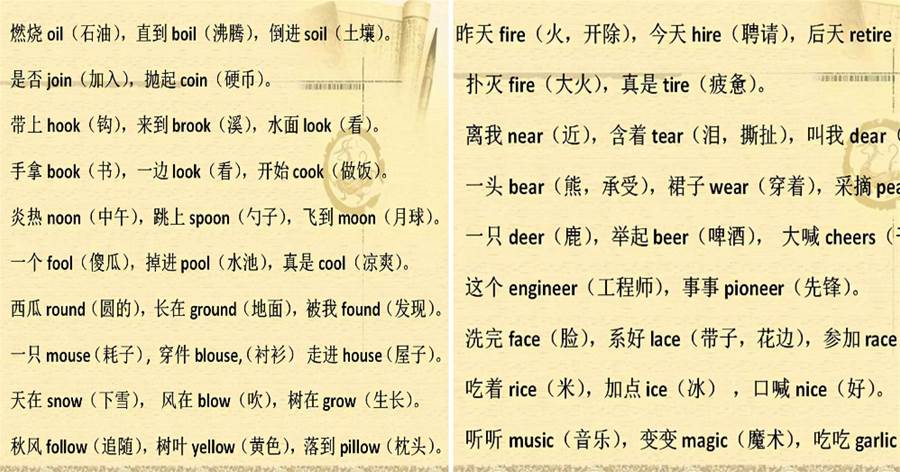 燃烧 oil（石油），直到 boil（沸腾），倒进 soil（土壤）。
是否 join（加入），抛起 coin（硬币）。
带上 hook（钩），来到 brook（溪），水面 look（看）。
手拿 book（书），一边 look（看），开始 cook（做饭）。
炎热 noon（中午），跳上 spoon（勺子），飞到 moon（月球）。
一个 fool（傻瓜），掉进 pool（水池），真是 cool（凉爽）。
西瓜 round（圆的），长在 ground（地面），被我 found（发现）。
一只 mouse（耗子）, 穿件 blouse,（衬衫） 走进 house（屋子）。
天在 snow（下雪）， 风在 blow（吹），树在 grow（生长）。
秋风 follow（追随），树叶 yellow（黄色），落到 pillow（枕头）。
昨天 fire（火，开除），今天 hire（聘请），后天 retire
扑灭 fire（大火），真是 tire（疲惫）。
离我 near（近），含着 tear（泪，撕扯），叫我 dear（
一头 bear（熊，承受），裙子 wear（穿着），采摘 pea
一只 deer（鹿），举起 beer（啤酒）， 大喊 cheers（
这个 engineer（工程师），事事 pioneer（先锋）。
洗完 face（脸），系好 lace（带子，花边），参加 race
吃着 rice（米），加点 ice（冰） ，口喊 nice（好）。
听听 music（音乐），变变 magic（魔术），吃吃 garlic